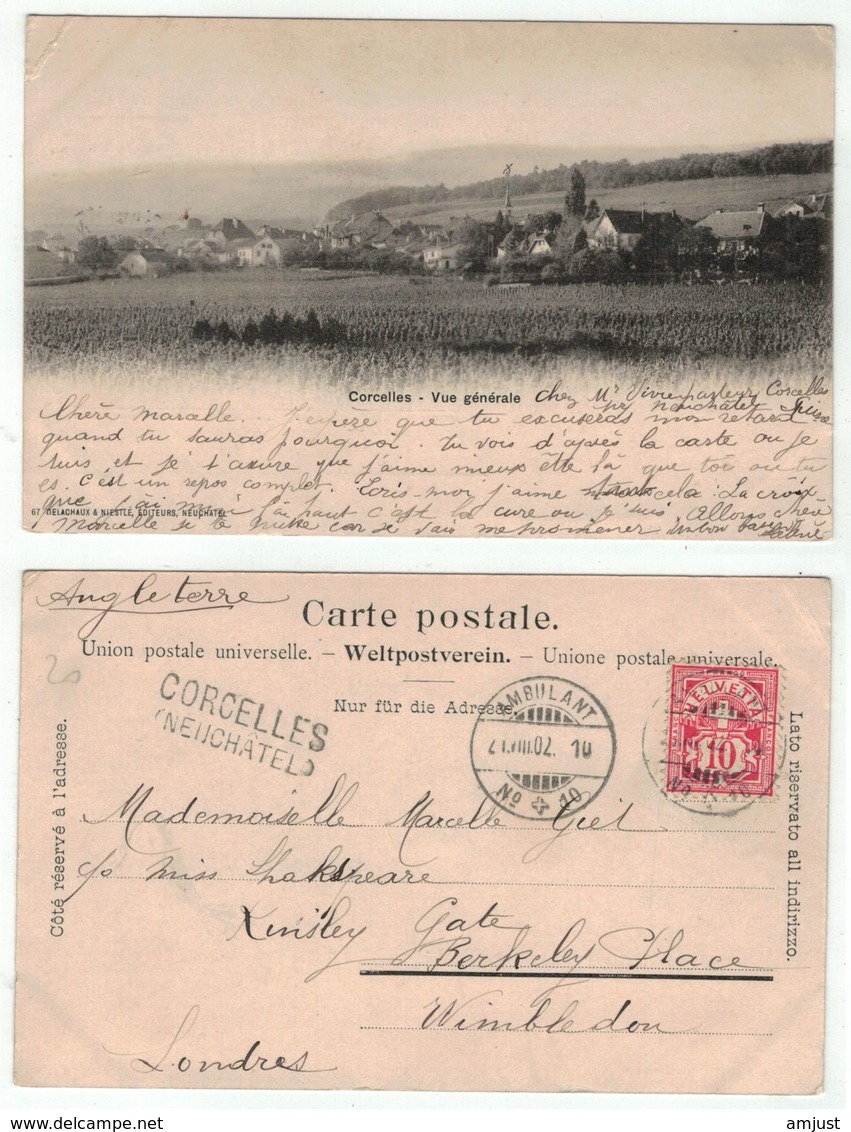 Corcelles - Vue générale
chez Mr Corcelles
pr Neuchâtel Suisse
Chère Marcelle. J'espère que tu excuseras mon retard
quand tu sauras pourquoi. Tu vois d'après la carte ou je
suis, et je t'assure que j'aime mieux être là que toi ou tu
es. C'est un repos complet. Ecris-moi, j'aime cela. La croix
que j'ai mis là haut c'est la cure ou je suis. Allons chère
67 DELACHAUX & NIESTLÉ, EDITEURS, NEUCHATEL
Marcelle je te quitte car je vais me promener. Un bon baiser
Angleterre
Carte postale.
Union postale universelle. – Weltpostverein. – Unione postale universale.
Nur für die Adresse.
20
CORCELLES
(NEUCHÂTEL)
AMBULANT
21.VIII.02. 10
No 10
HELVETIA
10
Côté réservé à l'adresse.
Lato riservato all indirizzo.
Mademoiselle Marcelle Giel
c/o Miss Shakespeare
Kinsley Gate
Berkeley Place
Wimbledon
Londres
amjust